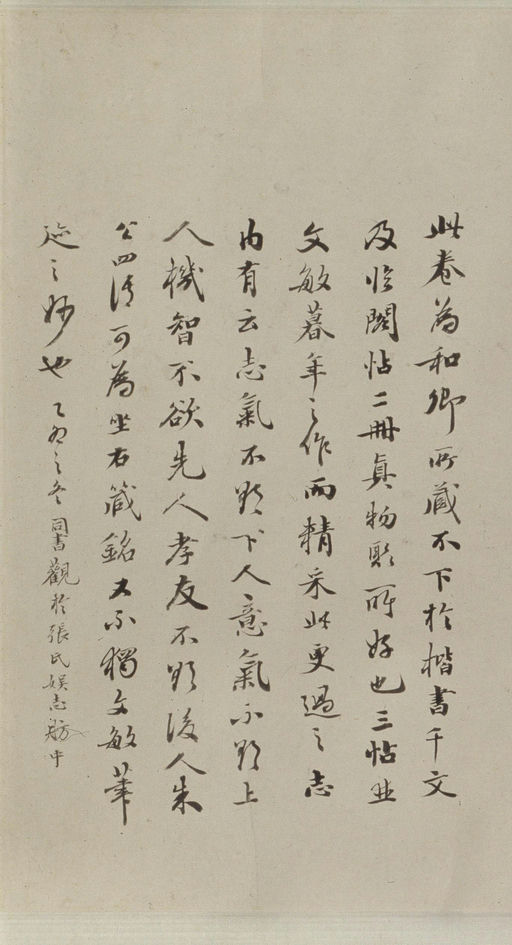 此卷為和卿所藏不下於楷書千文
及臨閣帖二冊真物聚所好也三帖並
文敏暮年之作而精采此更過之志
內有云志氣不欲下人意氣不欲上
人機智不欲先人孝友不欲後人朱
公四語可為坐右箴銘又不獨文敏筆
迹之妙也乙卯之冬同書觀於張氏娛志舫中